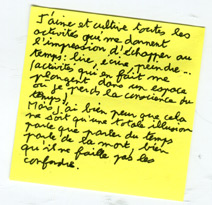 J'aime et cultive toutes les
activités qui me donnent
l'impression d'échapper au
temps: lire, écrire, peindre...
(activités qui en fait me
plongent dans un espace
où je perds la conscience du
temps).
Mais j'ai bien peur que cela
ne soit qu'une totale illusion
parce que parler du temps
parle de la mort, bien
qu'il ne faille pas les
confondre.